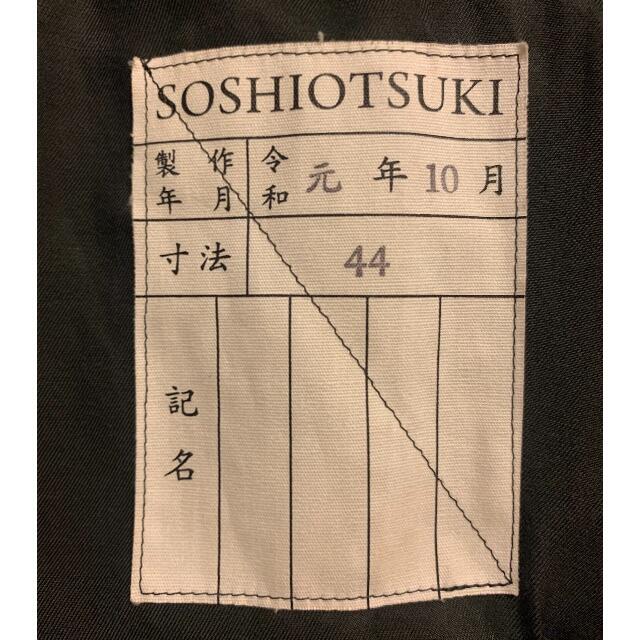 SOSHIOTSUKI
製作年月 令和元年10月
寸法 44
記名